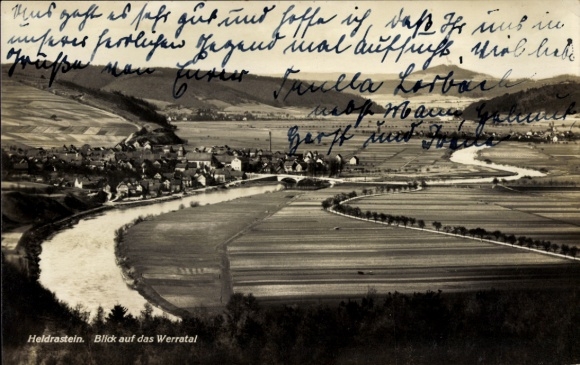 Uns geht es sehr gut und hoffe ich, daß Ihr uns in
unserer herrlichen Gegend mal aufsucht. Viele liebe
Grüße von Eurer
Lorbach
nebst Mann, Helmut
Gerst und Irene
Heldrastein. Blick auf das Werratal